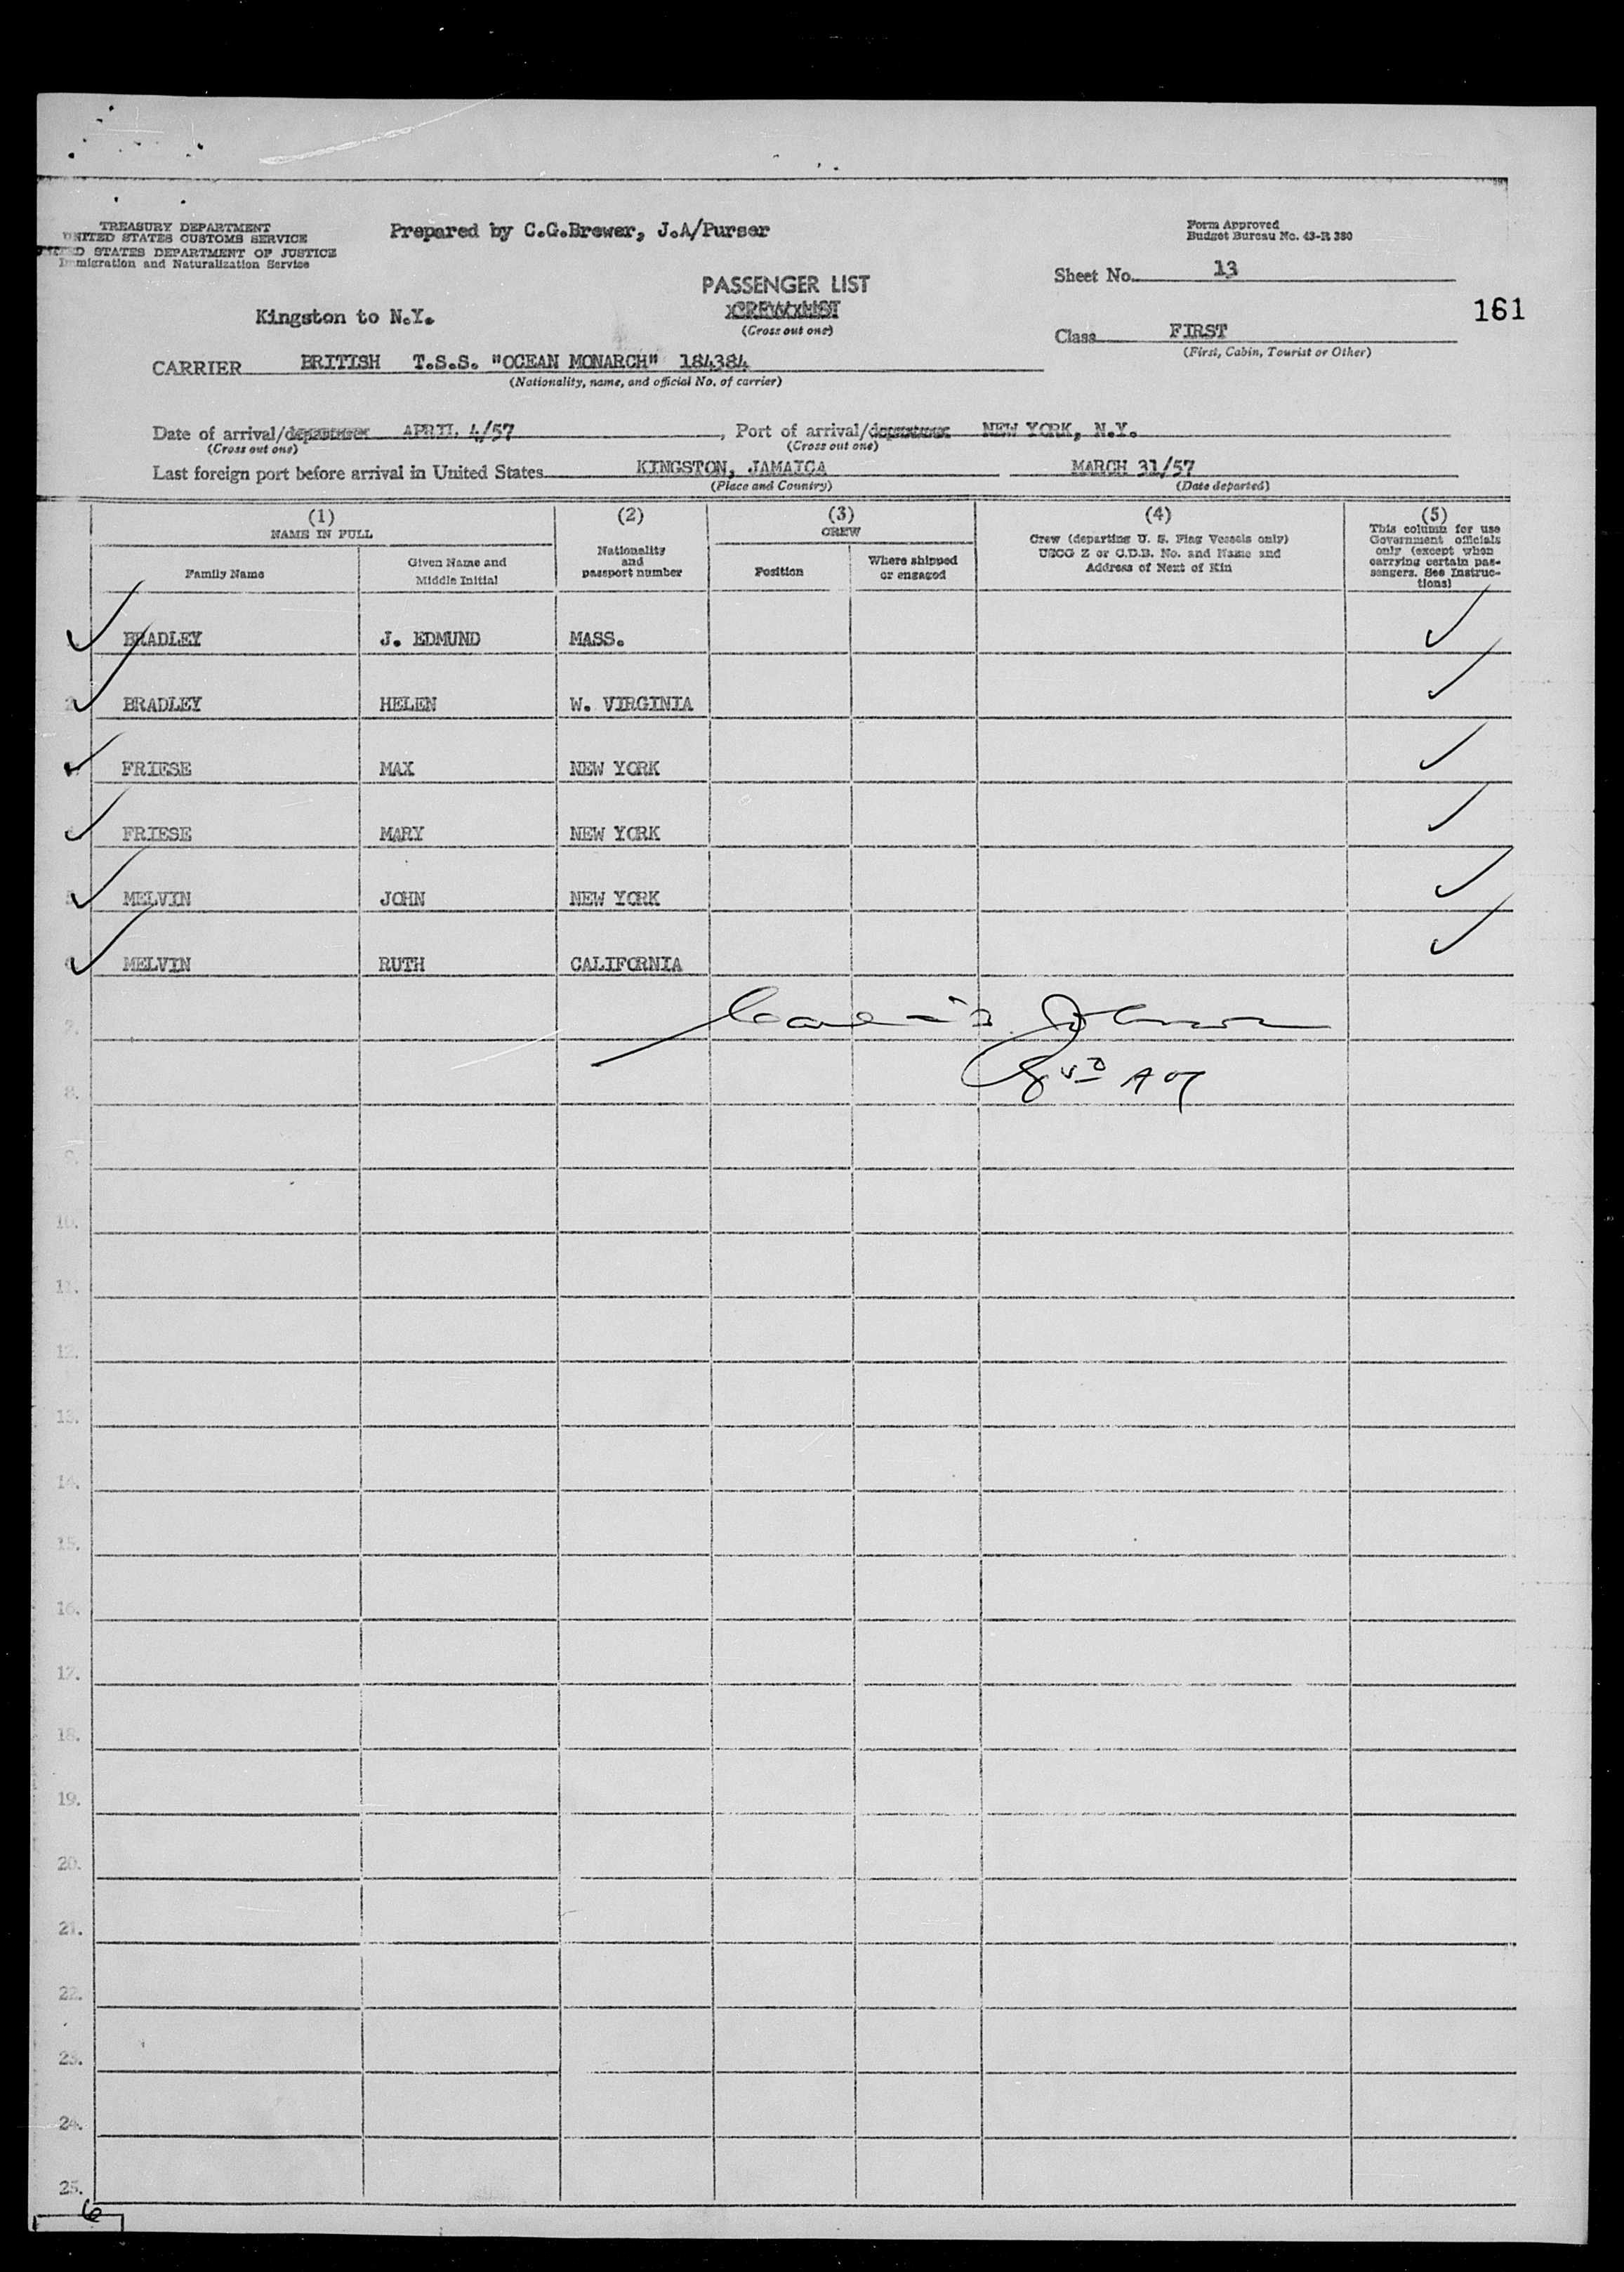 TREASURY DEPARTMENT
UNITED STATES CUSTOMS SERVICE
UNITED STATES DEPARTMENT OF JUSTICE
Immigration and Naturalization Service
Prepared by C.G.Brewer, J.A/Purser
Form Approved
Budget Bureau No. 43-R 380
PASSENGER LIST
CREW LIST
(Cross out one)
Sheet No. 13
161
Kingston to N.Y.
Class FIRST
(First, Cabin, Tourist or Other)
CARRIER BRITISH T.S.S. "OCEAN MONARCH" 184384
(Nationality, name, and official No. of carrier)
Date of arrival/departure APRIL 4/57, Port of arrival/departure NEW YORK, N.Y.
(Cross out one) (Cross out one)
Last foreign port before arrival in United States KINGSTON, JAMAICA MARCH 31/57
(Place and Country) (Date departed)
(1) (2) (3) (4) (5)
NAME IN FULL
Family Name
Given Name and
Middle Initial
Nationality
and
passport number
CREW
Position
Where shipped
or engaged
Crew (departing U. S. Flag Vessels only)
USCG Z or C.D.B. No. and Name and
Address of Next of Kin
This column for use
Government officials
only (except when
carrying certain pas-
sengers. See Instruc-
tions)
BRADLEY J. EDMUND MASS.
2. BRADLEY HELEN W. VIRGINIA
FRIESE MAX NEW YORK
FRIESE MARY NEW YORK
5 MELVIN JOHN NEW YORK
6 MELVIN RUTH CALIFORNIA
7.
8.
9.
10.
11.
12.
13.
14.
15.
16.
17.
18.
19.
20.
21.
22.
23.
24.
25.
6